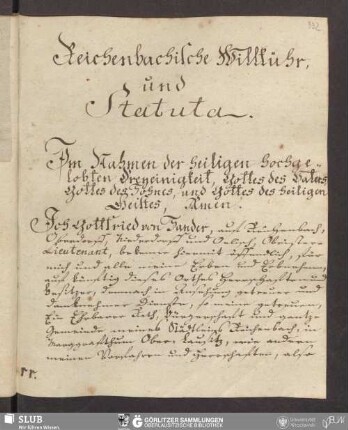 Reichenbachische Willkuhr,
und
Statuta.
Im Nahmen der heiligen hochge-
lobten Dreyeinigkeit, Gottes des Vaters
Gottes des Sohnes, und Gottes des heiligen
Geistes, Amen.
Ich Gottfried von Sander, auf Reichenbach,
Oberdorff, Niederdorff und Oelisch, Obrister
Lieutenant, bekenne hiermit öffentlich, für
mich und alle meine Erben und Erbnehmen,
auch künftig dieses Orthes Herrschafften und
Besitzer, demnach in Ansehung getreuer und
danknehmer Dienste, so meine getreuen,
Ein Ehrbarer Rath, Bürgerschafft und gantze
Gemeinde meines Städtleins Reichenbach, in
Marggraffthum Ober-Lausitz, wie andern
meinen Vorfahren und Herrschafften, also
SLUB
Wir führen Wissen.
GÖRLITZER SAMMLUNGEN
OBERLAUSITZISCHE BIBLIOTHEK